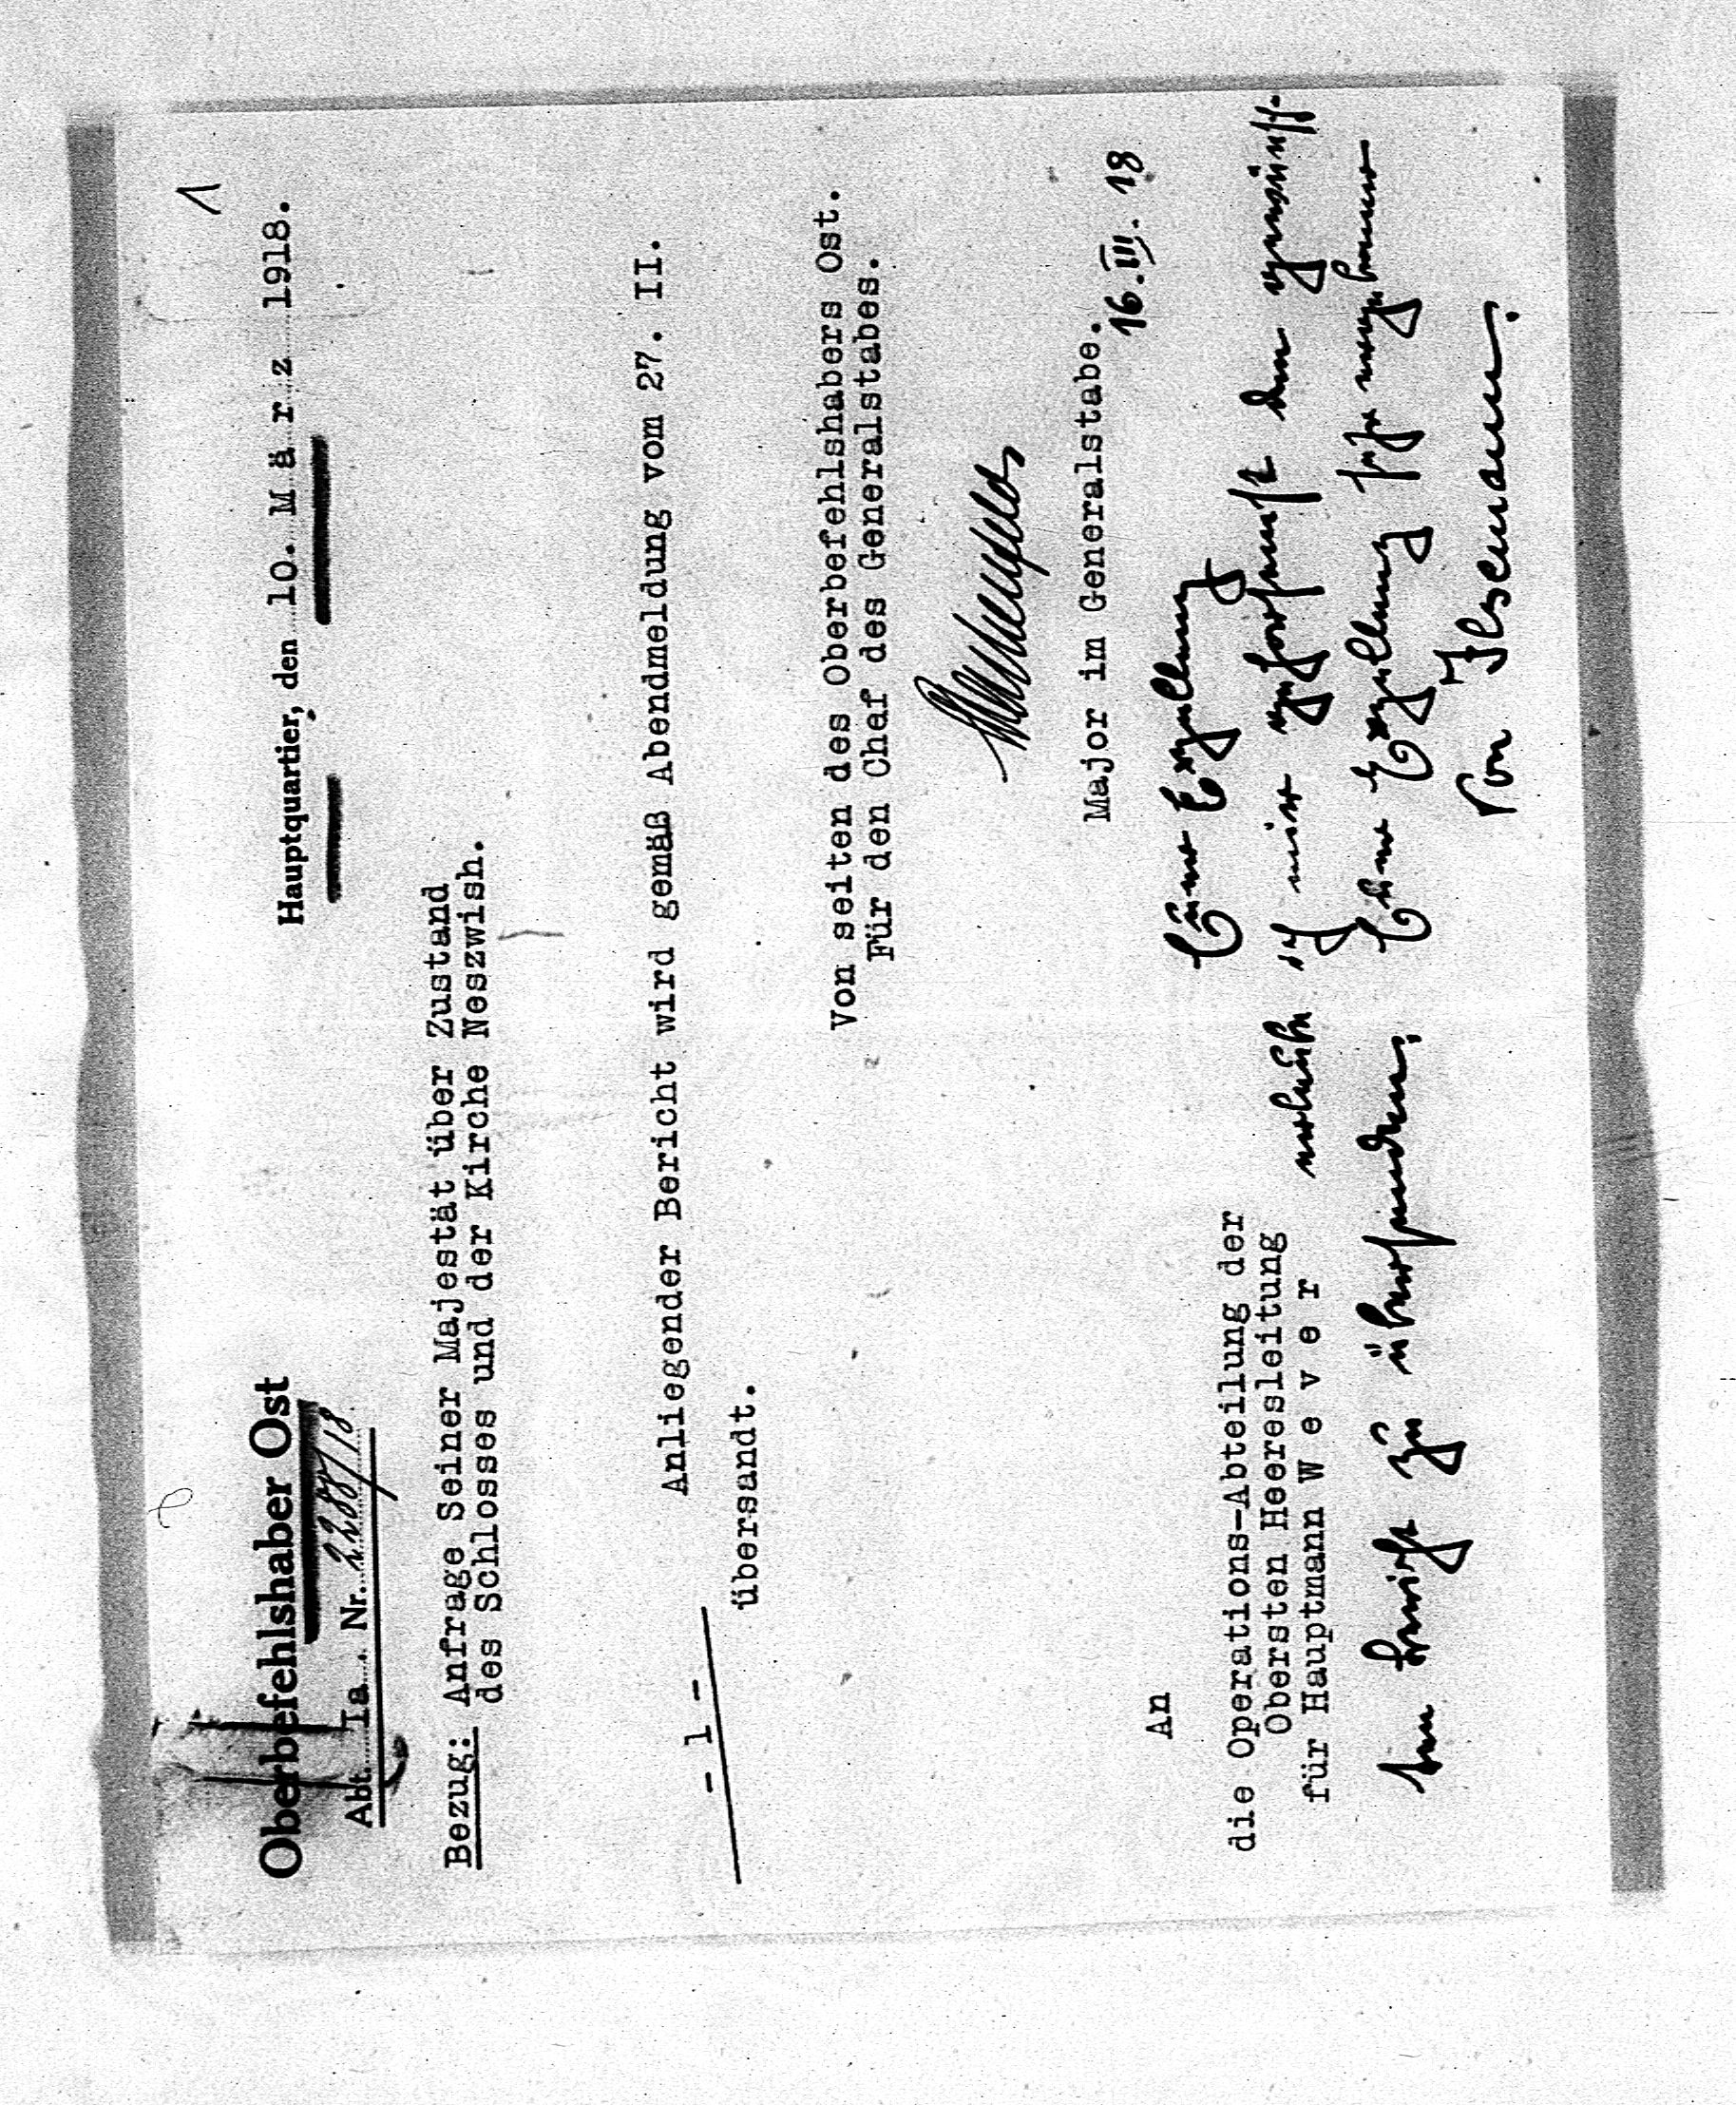 1
Oberbefehlshaber Ost
Hauptquartier, den 10. M ä r z 1918.
Abt. Ia. Nr. 2288/18.
Bezug: Anfrage Seiner Majestät über Zustand
des Schlosses und der Kirche Neszwish.
Anliegender Bericht wird gemäß Abendmeldung vom 27. II.
- 1 -
übersandt.
Von seiten des Oberbefehlshabers Ost.
Für den Chef des Generalstabes.
Major im Generalstabe.
16. III. 18
An
die Operations-Abteilung der
Obersten Heeresleitung
für Hauptmann W e v e r
Euer Exzellenz
erlaube ich mir gehorsamst den gewünsch-
ten Bericht zu übersenden.
Euer Exzellenz sehr ergebener
von Ilsemann.